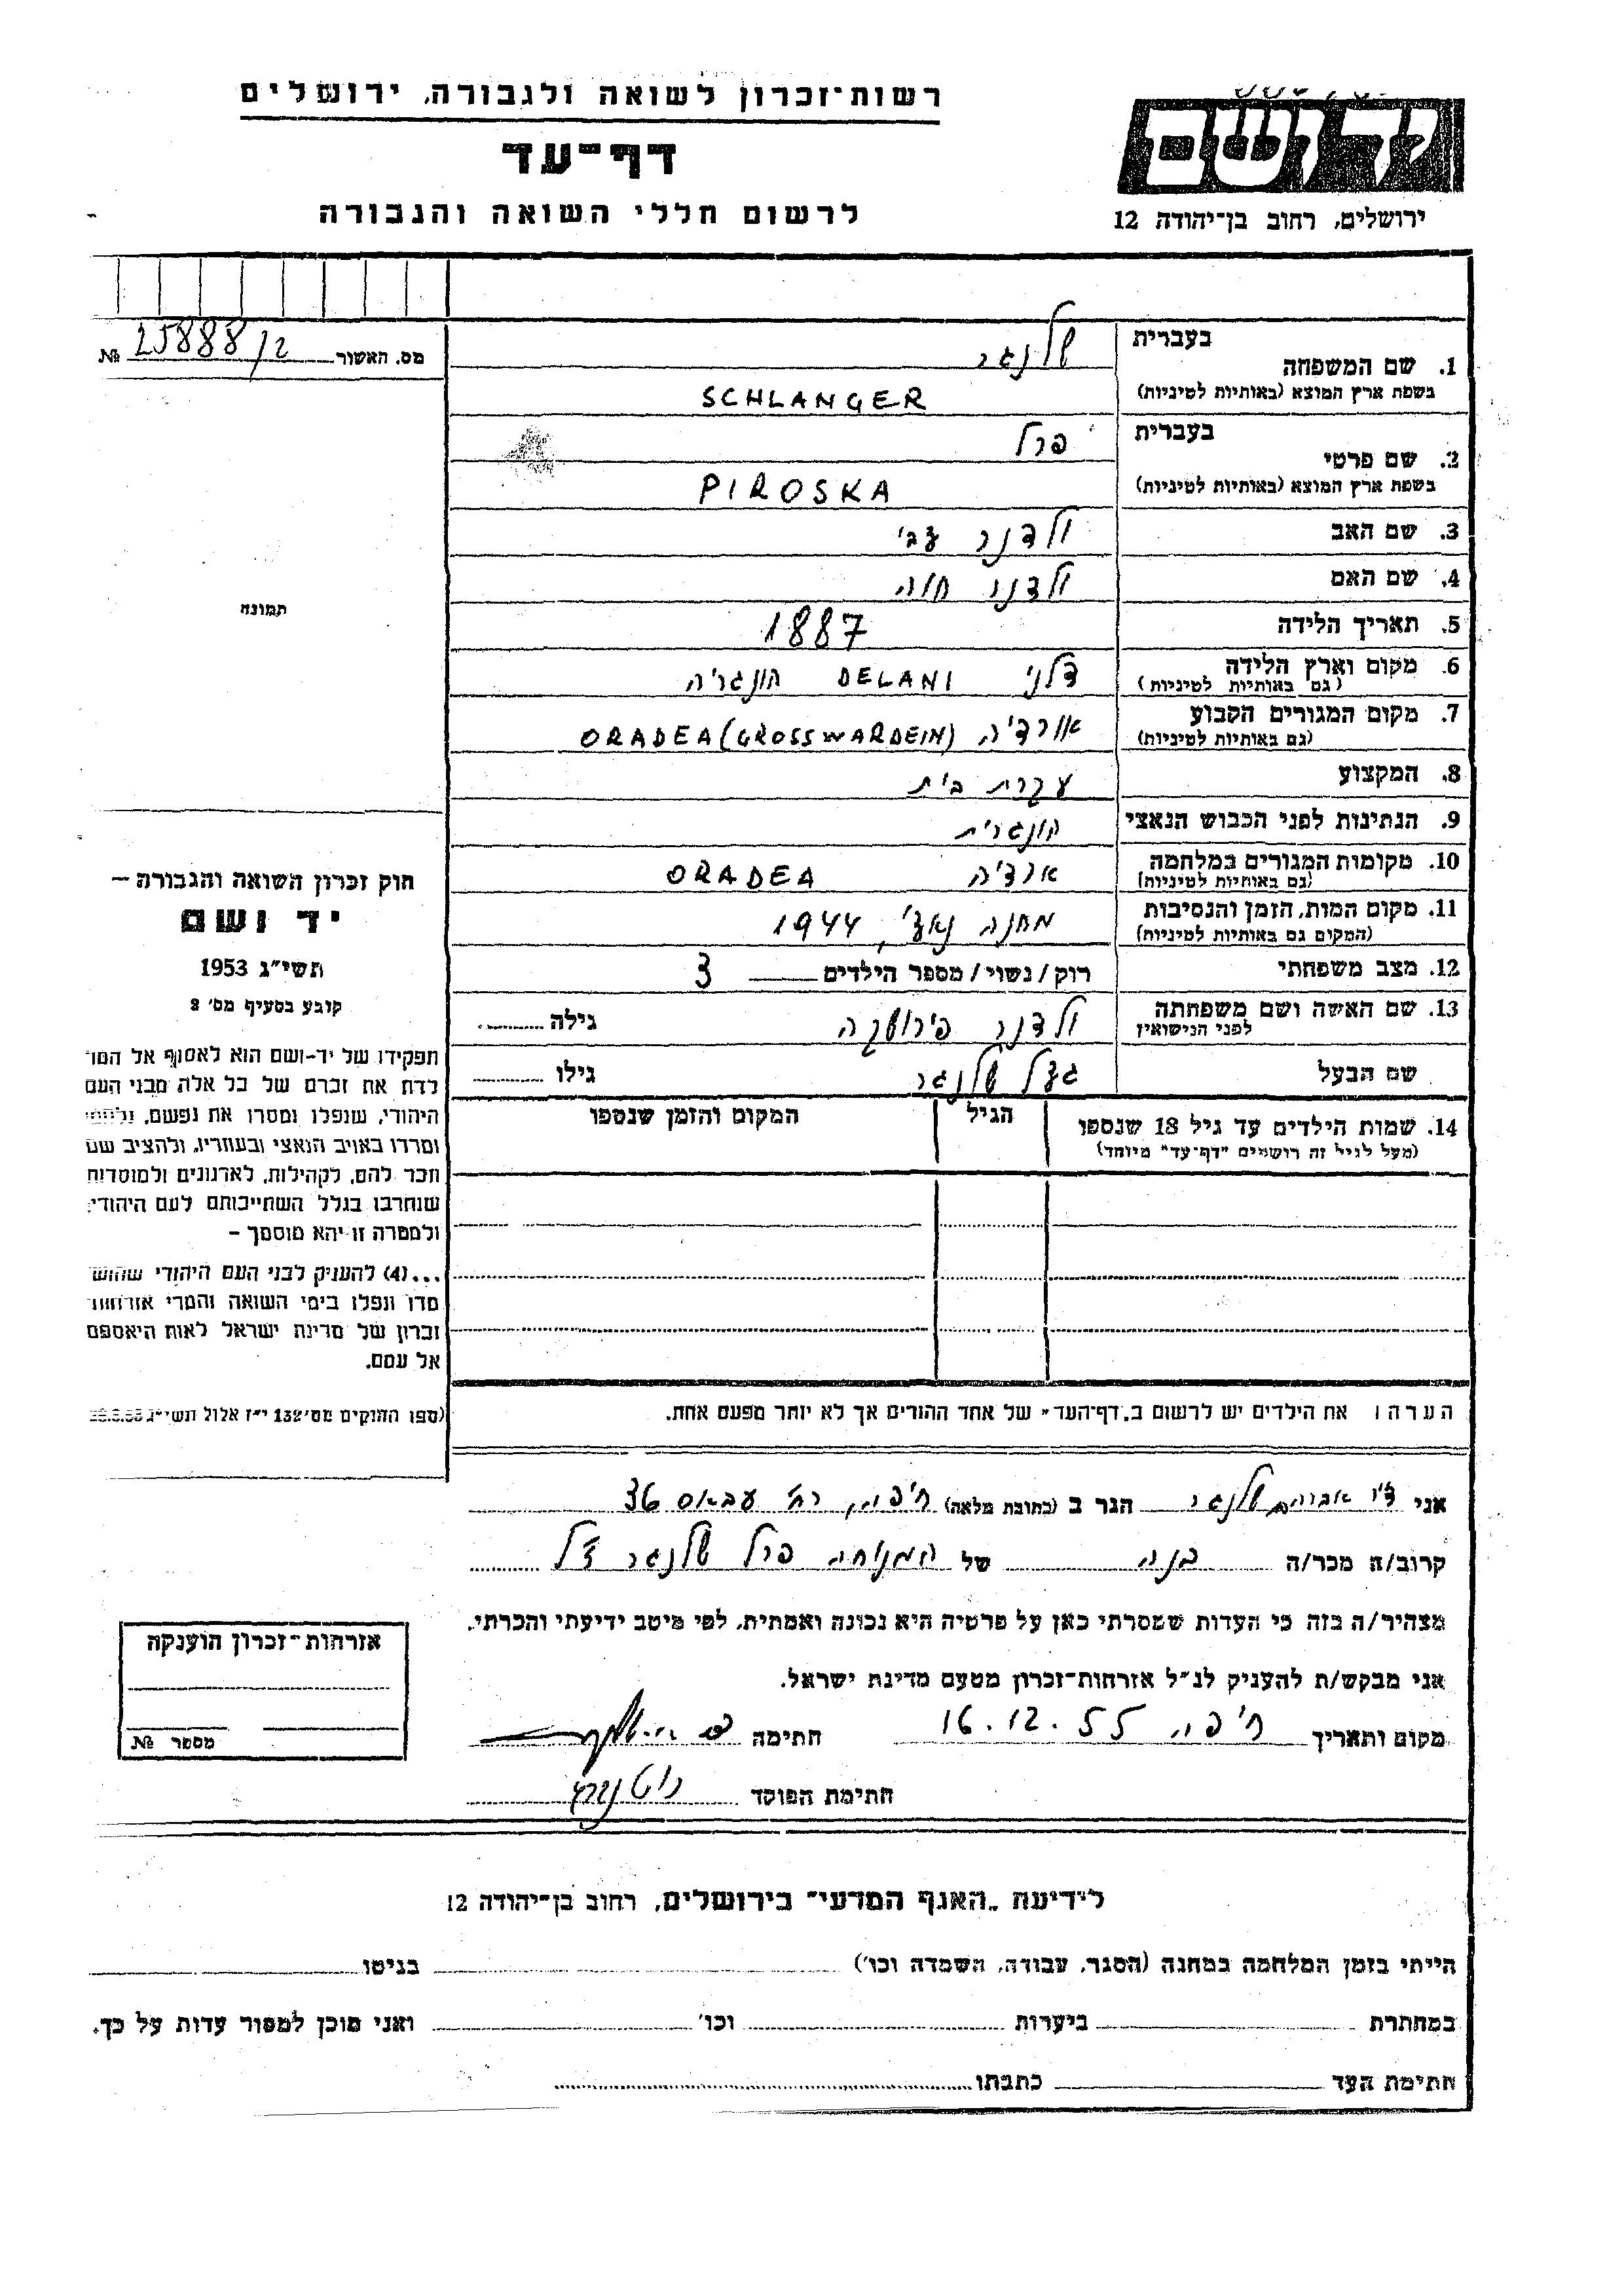 רשות־זכרון לשואה ולגבורה, ירושלים
דף־עד
לרשום חללי השואה והגבורה
יד ושם
ירושלים, רחוב בן־יהודה 12
מס. האשור 25888/2 №
1. שם המשפחה בעברית שלנגר
בשפת ארץ המוצא (באותיות לטיניות) SCHLANGER
2. שם פרטי בעברית פרל
בשפת ארץ המוצא (באותיות לטיניות) PIROSKA
3. שם האב ולדנר צבי
4. שם האם ולדנר חוה
5. תאריך הלידה 1887
6. מקום וארץ הלידה דלני DELANI הונגריה
(גם באותיות לטיניות)
7. מקום המגורים הקבוע אורדיה ORADEA (GROSSWARDEIN)
(גם באותיות לטיניות)
8. המקצוע עקרת בית
9. הנתינות לפני הכבוש הנאצי הונגרית
10. מקומות המגורים במלחמה ארדיה ORADEA
(גם באותיות לטיניות)
11. מקום המות, הזמן והנסיבות מחנה נאצי, 1944
(המקום גם באותיות לטיניות)
12. מצב משפחתי רוק/נשוי/מספר הילדים 3
13. שם האשה ושם משפחתה ולדנר פירושקה גילה
לפני הנישואין
שם הבעל שלנגר גילו
14. שמות הילדים עד גיל 18 שנספו הגיל המקום והזמן שנספו
(מעל לגיל זה רושמים "דף־עד" מיוחד)
הערה: את הילדים יש לרשום ב„דף־העד" של אחד ההורים אך לא יותר מפעם אחת.
תמונה
חוק זכרון השואה והגבורה –
יד ושם
תשי"ג 1953
קובע בסעיף מס' 2
תפקידו של יד-ושם הוא לאסוף אל המו
לדת את זכרם של כל אלה מבני העם
היהודי, שנפלו ומסרו את נפשם, נלחמו
ומרדו באויב הנאצי ובעוזריו, ולהציב שם
וזכר להם, לקהילות, לארגונים ולמוסדות
שנחרבו בגלל השתייכותם לעם היהודי;
ולמטרה זו יהא מוסמך –
...(4) להעניק לבני העם היהודי שהוש
מדו ונפלו בימי השואה והמרי אזרחות
זכרון של מדינת ישראל לאות היאספם
אל עמם.
(ספר החוקים מס' 132 י"ז אלול תשי"ג
אני אברהם שלנגר הגר ב (כתובת מלאה) חיפה, רח' עבאס 36
קרוב/ה מכר/ה בנה של המנוחה פרל שלנגר ז"ל
מצהיר/ה בזה כי העדות שמסרתי כאן על פרטיה היא נכונה ואמתית, לפי מיטב ידיעתי והכרתי.
אני מבקש/ת להעניק לנ"ל אזרחות־זכרון מטעם מדינת ישראל.
מקום ותאריך חיפה 16.12.55 חתימה
חתימת הפוקד
אזרחות־זכרון הוענקה
מספר №
לידיעת „האגף המדעי" בירושלים, רחוב בן־יהודה 12
הייתי בזמן המלחמה במחנה (הסגר, עבודה, השמדה וכו') בגיטו
במחתרת ביערות וכו' ואני מוכן למסור עדות על כך.
חתימת העד כתבתו